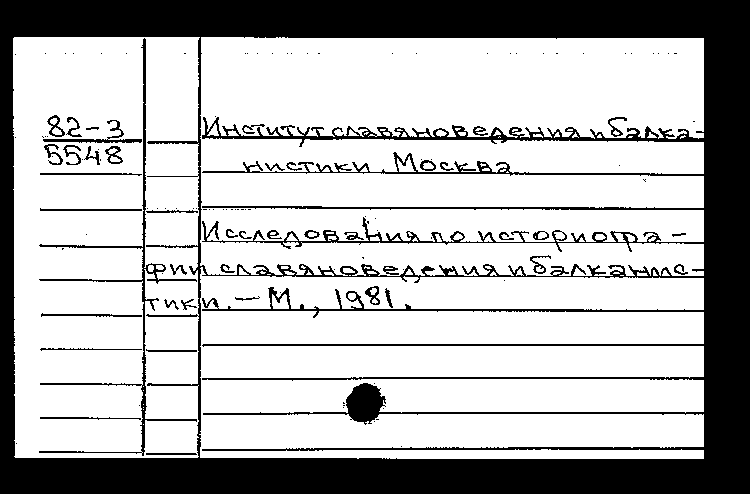 82-3
5548
Институт славяноведения и балка-
нистики. Москва
Исследования по историогра-
фии славяноведения и балканис-
тики. — М., 1981.